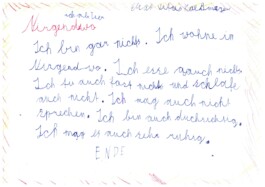 Nirgendwo
Ich bin gar nichts. Ich wohne in
Nirgendwo. Ich esse auch nichts
Ich tu auch fast nichts und schlafe
auch nicht. Ich mag auch nicht
sprechen. Ich bin auch durchsichtig.
Ich mag es auch sehr ruhig.
ENDE